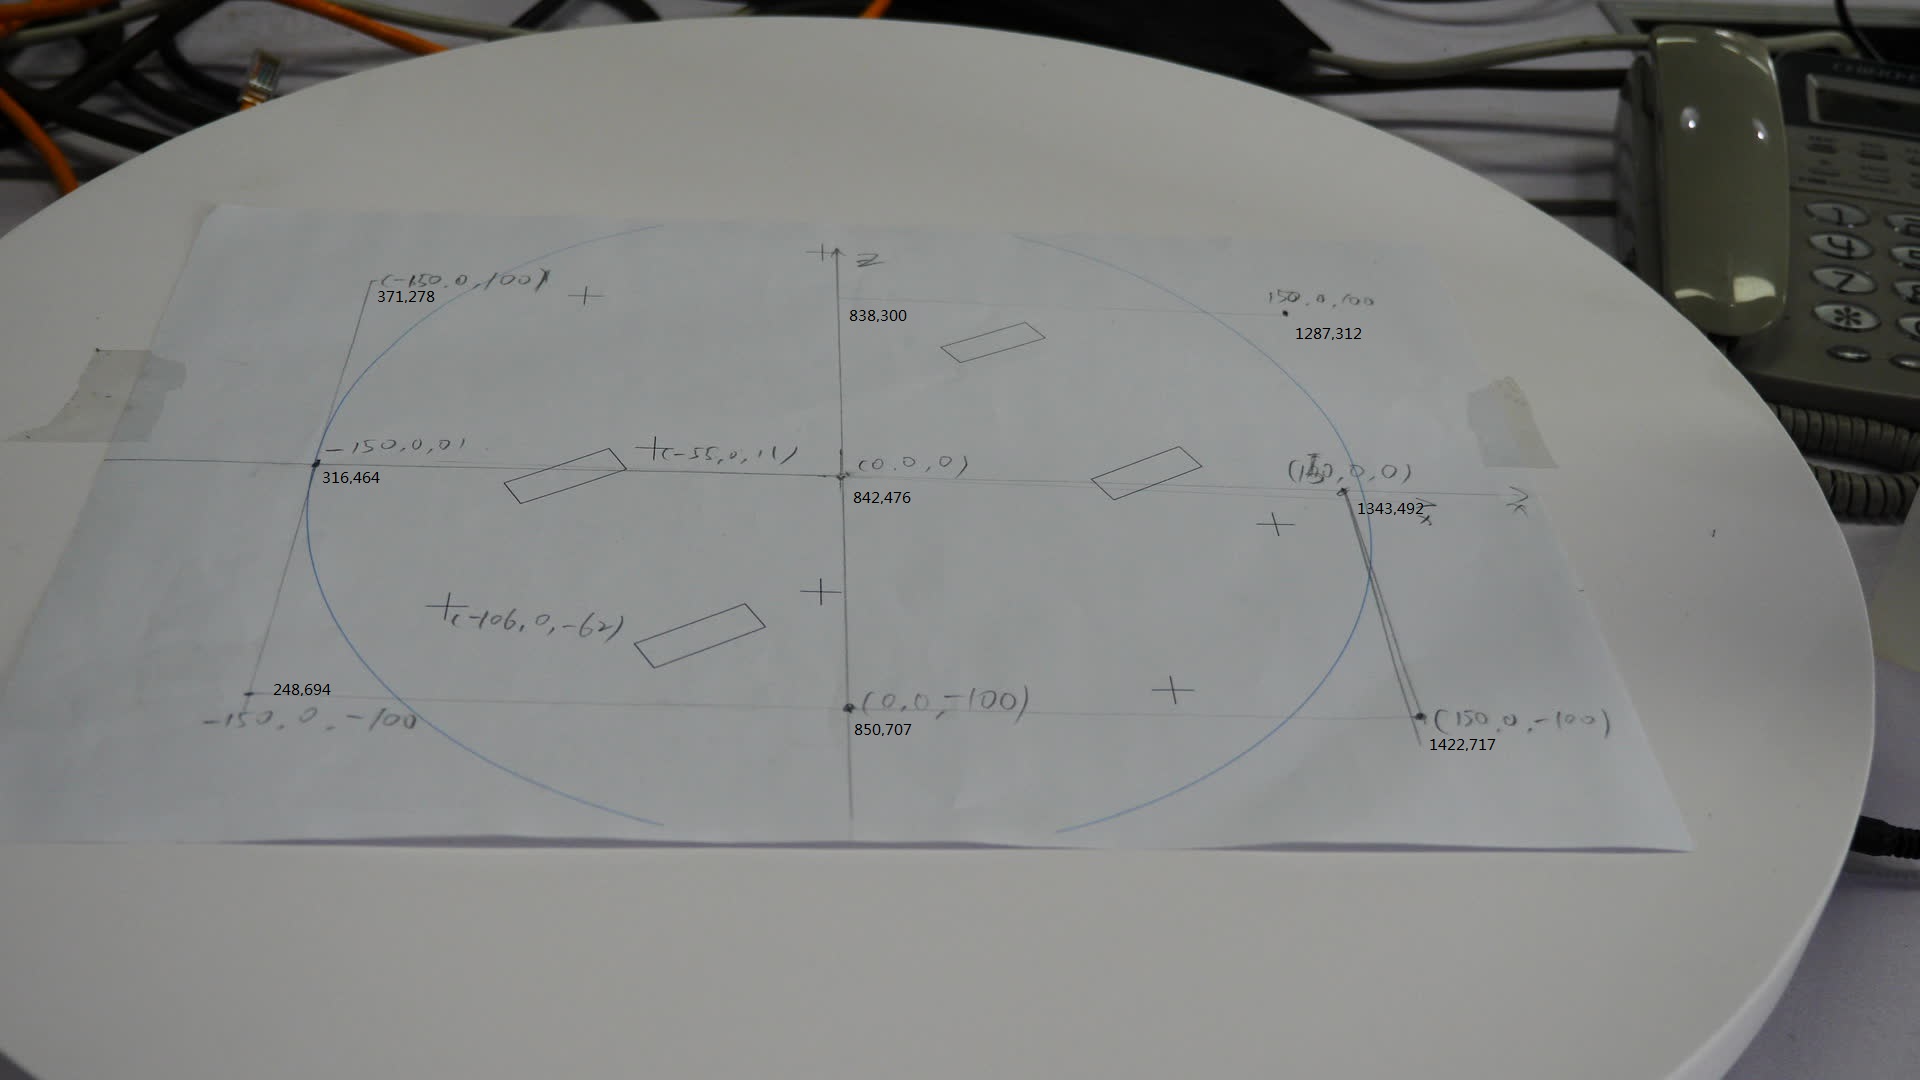 + Z
(-150.0,100)
371,278
838,300
150.0,100
1287,312
-150,0,0)
316,464
(-55,0,11)
(0.0,0)
842,476
(150,0,0)
1343,492
x
x
(-106,0,-62)
248,694
-150,0,-100
(0,0,-100)
850,707
(150,0,-100)
1422,717
1
4
7
*